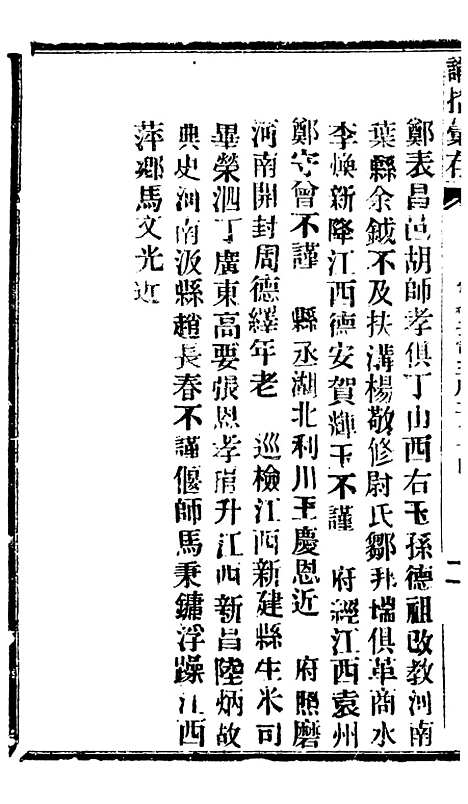 諭摺彙存
鄭表昌邑胡師孝俱丁山西右玉孫德祖改教河南
葉縣余鉞不及扶溝楊敬修尉氏鄒兆瑞俱革商水
李煥新降江西德安賀輝玉不謹　府經江西袁州
鄭守曾不謹　縣丞湖北利川王慶恩近　府照磨
河南開封周德繹年老　巡檢江西新建縣生米司
畢榮泗丁廣東高要張恩孝捐升江西新昌陸炳故
典史河南汲縣趙長春不謹偃師馬秉鏞浮躁江西
萍鄉馬文光近